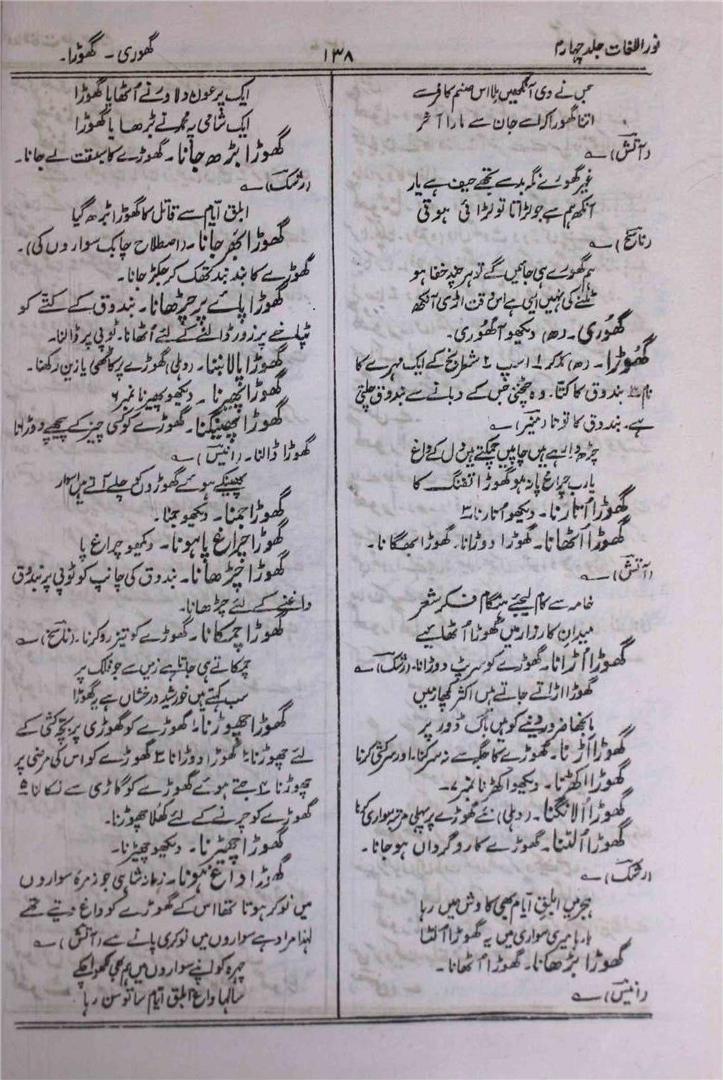 نور اللغات جلد چہارم
۱۳۸
گھوری - گھوڑا۔
جس نے دی آنکھیں بلا اس صنم کافر سے
اتنا گھورا کہ اسے جان سے مارا آخر
(آتش) ؎
غیر گھورے نگہ بد سے تجھے حیف ہے یار
آنکھ ہم سے جو لڑاتا تو لڑائی ہوتی
(ناسخ) ؎
ہم گھورے ہی جائیں گے تو ہر چند خفا ہو
ٹلنے کی نہیں ایسی ہے اس وقت اڑی آنکھ
گھُوری۔ (ھ) دیکھو آنکھ گھوری۔
گھوڑا۔ (ھ) مذکر ۱ اسپ ۲ شطرنج کے ایک مہرے کا
نام ۳ بندوق کا کتا۔ وہ جس کے دبانے سے بندوق چلتی
ہے۔ بندوق کا توتا (منیر) ؎
چڑھ ہیں چانپیں چمکتے ہیں دل کے داغ
یارب چراغ پا نہ ہو گھوڑا تفنگ کا
گھوڑا اُتارنا۔ دیکھو اُتارنا ۳
گھوڑا اُٹھانا۔ گھوڑا دوڑانا۔ گھوڑا بھگانا۔
(آتش) ؎
خامہ سے کام لیجئے ہنگام فکر شعر
میدان کارزار میں گھوڑا اُٹھائیے
گھوڑا اُڑانا۔ گھوڑے کو سرپٹ دوڑانا۔ (رشک) ؎
گھوڑا اڑاتے جاتے ہیں اکثر کچھار میں
ضرور دینے کو ہیں باگ ڈور پر
گھوڑا اَڑنا۔ گھوڑے کا جگہ سے نہ سرکنا۔ اور سرکشی کرنا
گھوڑا اکھڑنا۔ دیکھو اکھڑنا نمبر ۷۔
گھوڑا اُلانگنا۔ (دہلی) نئے گھوڑے پر پہلی مرتبہ سواری کرنا
گھوڑا اُلٹنا۔ گھوڑے کا روگرداں ہو جانا۔
(رشک) ؎
ہجر میں ابلق ایام بھی کاوش میں رہا
بارہا میری سواری میں یہ گھوڑا اُلٹا
گھوڑا بڑھانا۔ گھوڑا اُٹھانا۔
(انیس) ؎
ایک پر عون دلاور نے اُٹھایا گھوڑا
ایک شامی پہ محمد نے بڑھایا گھوڑا
گھوڑا بڑھ جانا۔ گھوڑے کا سبقت لے جانا۔
(رشک) ؎
ابلق ایام سے قاتل کا گھوڑا بڑھ گیا
گھوڑا بھر جانا۔ (اصطلاح چابک سواروں کی)۔
گھوڑے کا بند بند تھک کر جکڑ جانا۔
گھوڑا پائے پر چڑھانا۔ بندوق کے کتے کو
پر زور ڈالنے کے لئے اُٹھانا۔ ٹوپی پر ڈالنا۔
گھوڑا پالاننا۔ (دہلی) گھوڑے پر کاٹھی یا زین رکھنا۔
گھوڑا پھیرنا۔ دیکھو پھیرنا نمبر ۶
گھوڑا پھینکنا۔ گھوڑے کو کسی چیز کے پیچھے دوڑانا
گھوڑا ڈالنا۔ (انیس) ؎
پھینکے ہوئے گھوڑوں کو چلے آتے ہیں اسوار
گھوڑا جمنا۔ دیکھو جمنا۔
گھوڑا چراغ پا ہونا۔ دیکھو چراغ پا
گھوڑا چڑھانا۔ بندوق کی چانپ کو ٹوپی پر بندوق
داغنے کے لئے چڑھانا۔
گھوڑا چمکانا۔ گھوڑے کو تیز رو کرنا۔ (ناسخ) ؎
چمکاتے ہی جاتا ہے زمیں سے جو فلک پر
سب کہتے ہیں خورشید درخشاں ہے یہ گھوڑا
گھوڑا چھوڑنا۔ ۱ گھوڑے کو گھوڑی پر بچہ کشی کے
لئے چھوڑنا ۲ گھوڑا دوڑانا ۳ گھوڑے کو اس کی مرضی پر
چھوڑنا ۴ جتے ہوئے گھوڑے کو گاڑی سے نکالنا ۵
گھوڑے کو چرنے کے لئے کھلا چھوڑنا۔
گھوڑا چھیڑنا۔ دیکھو چھیڑنا۔
گھوڑا داغ ہونا۔ زمانہ شاہی جو زمرہ سواروں
میں نوکر ہوتا تھا اس کے گھوڑے کو داغ دیتے تھے
لہٰذا مراد ہے سواروں میں نوکری پانے سے (آتش) ؎
چہرہ کو اپنے سواروں میں ہم بھی لکھوا چکے
سالہا داغ ابلق ایام سا توسن رہا